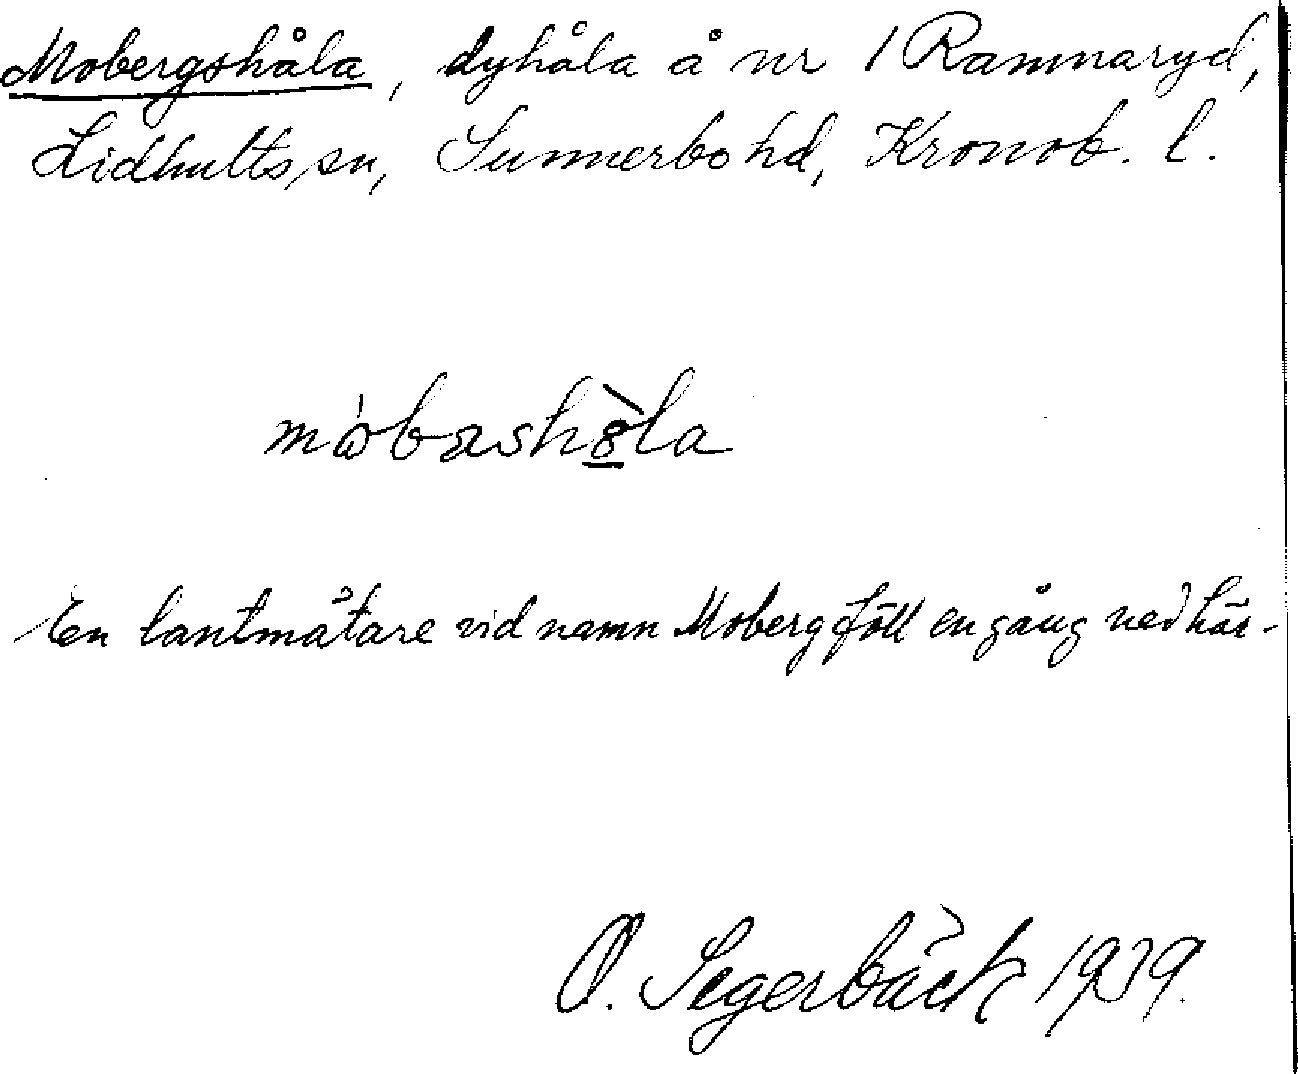 Mobergshåla, dyhåla å nr 1 Ramnaryd,
Lidhults sn, Sunnerbo hd, Kronob. l.
En lantmätare vid namn Moberg föll en gång ned här.
O. Segerbäck 1939.